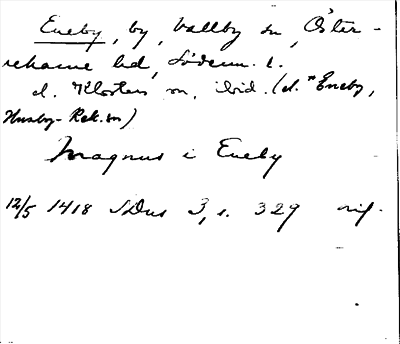 Eneby, by, Vallby sn, Öster-
rekarne hd, Söderm. l.
el. Klosters sn, ibid. (el. *Eneby,
Husby-Rek. sn)
Magnus i Eneby
12/5 1418 SDns 3, s. 329 orig.